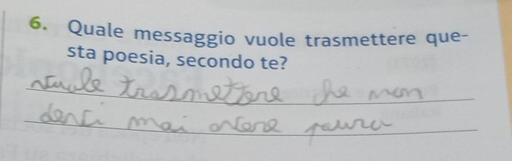 6. Quale messaggio vuole trasmettere que-
sta poesia, secondo te?
vuole trasmettere che non
devi mai avere paura